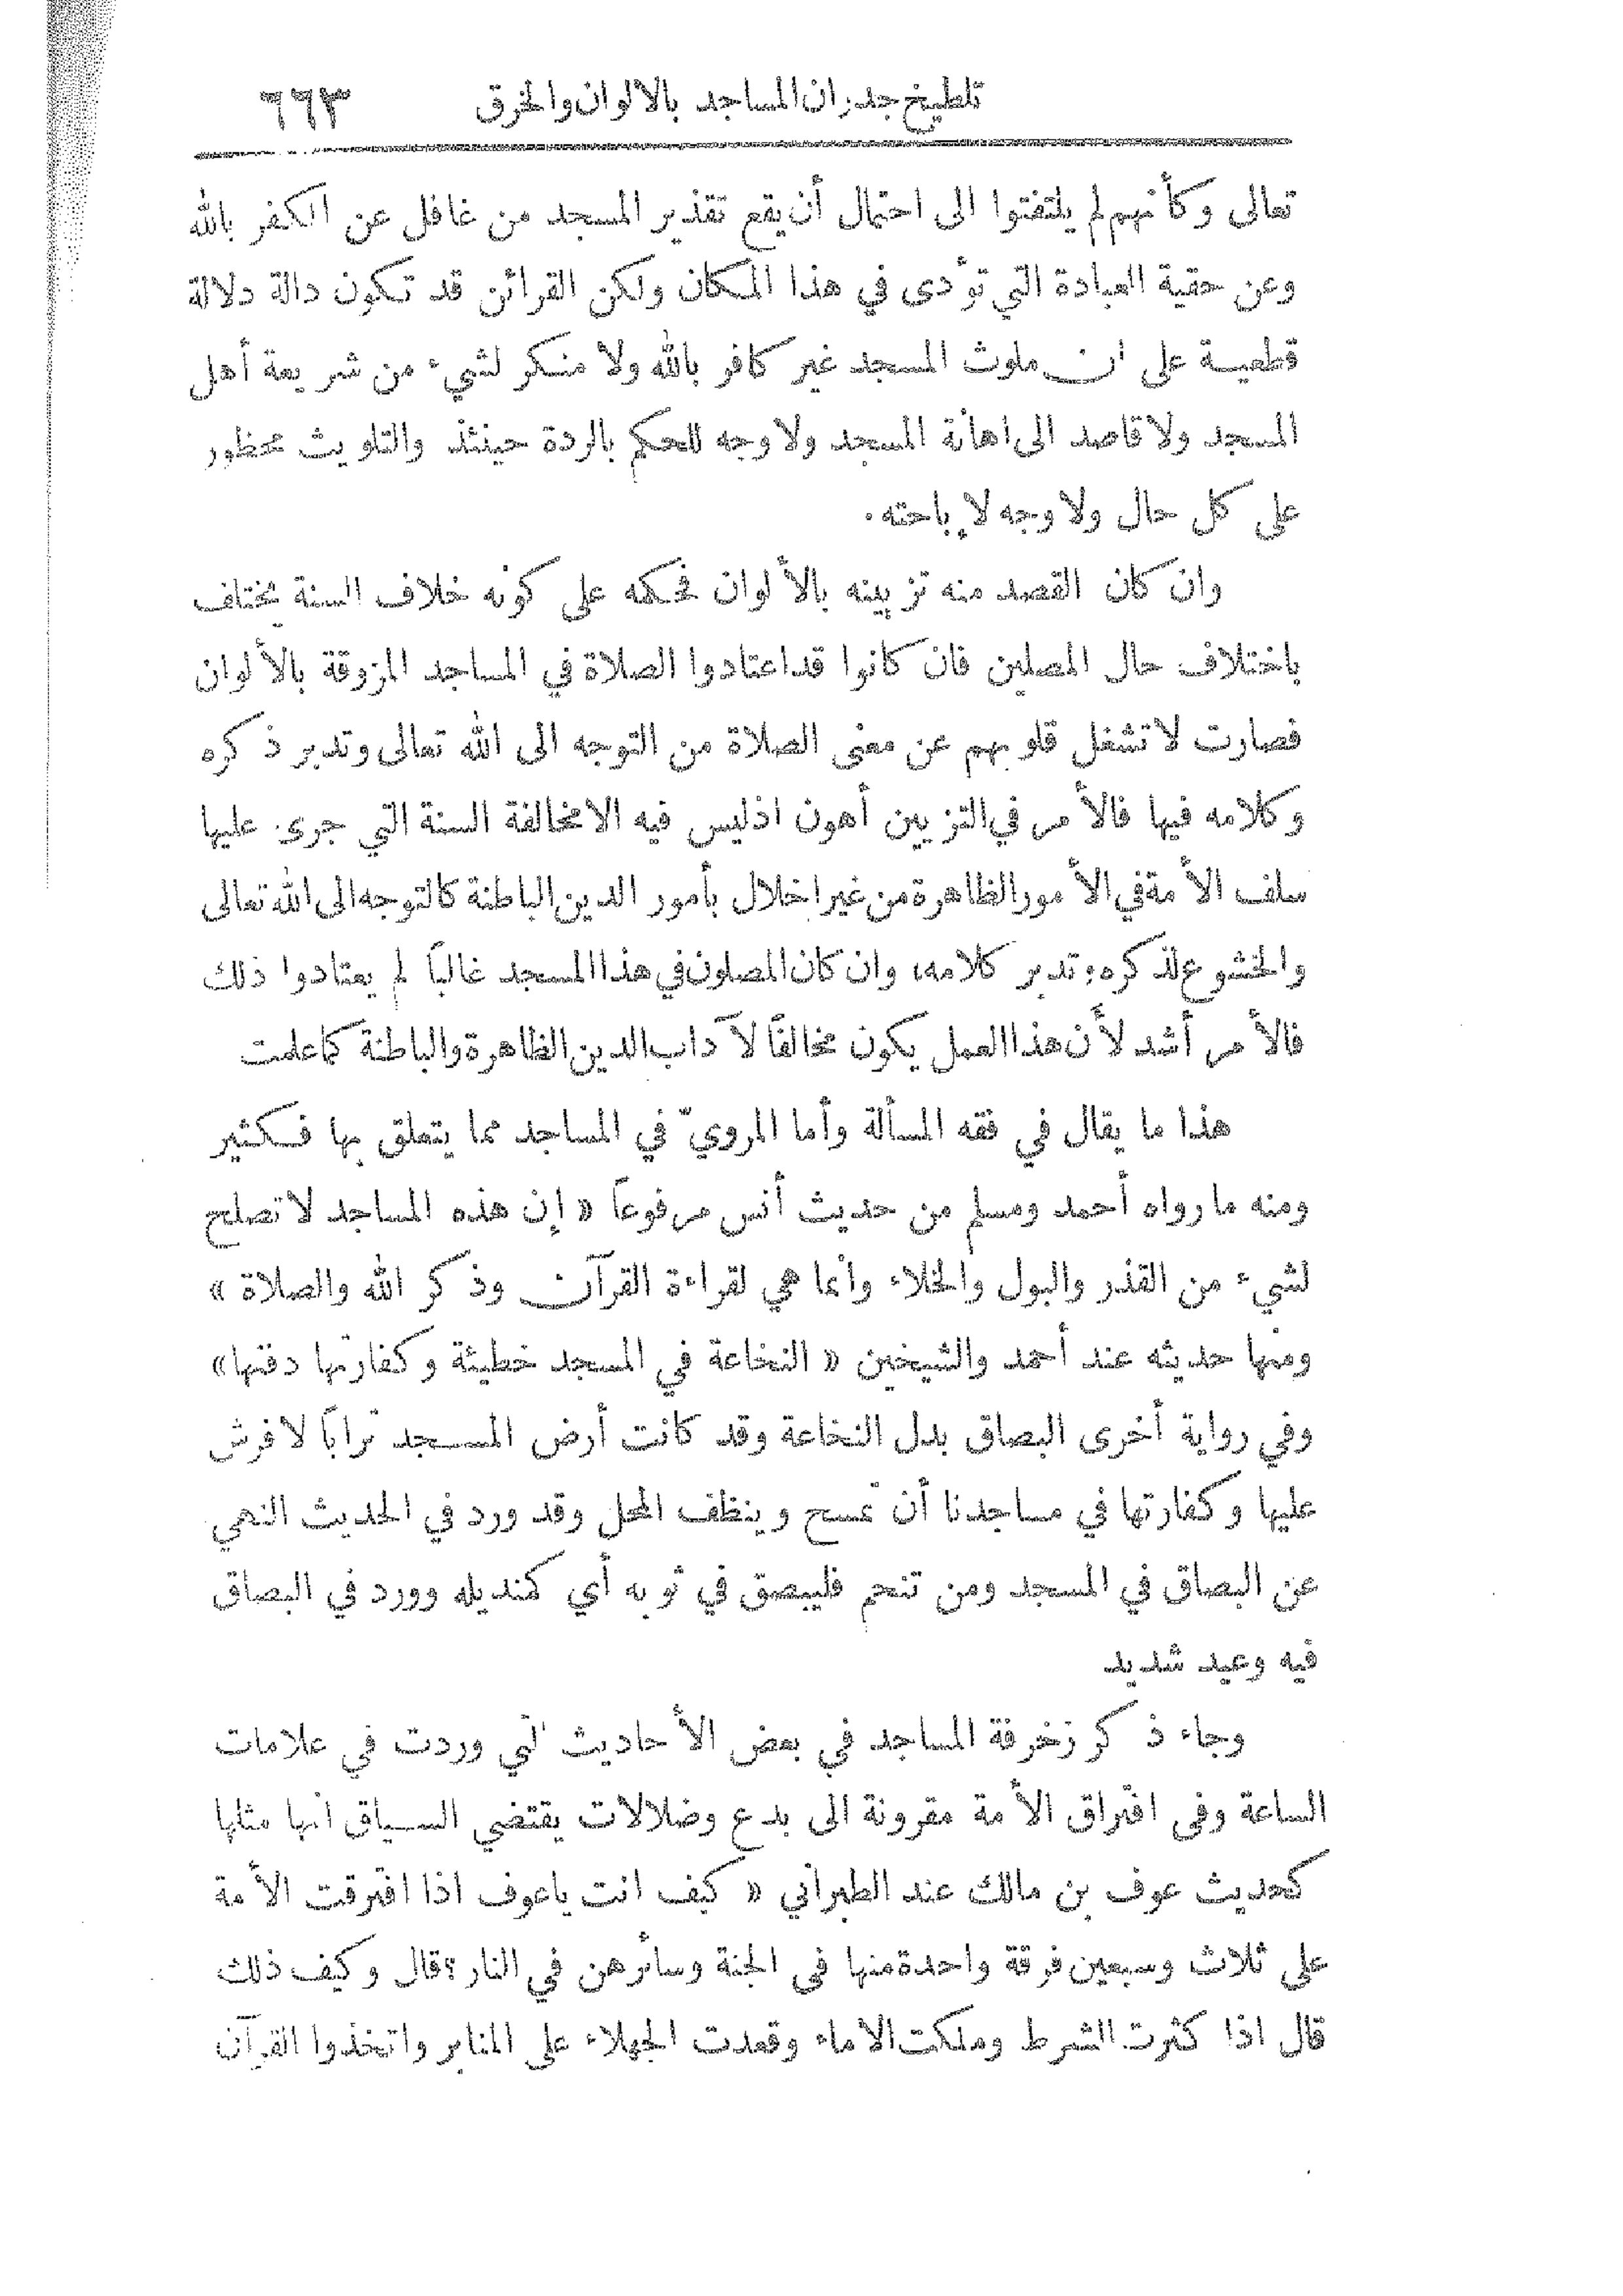 تلطيخ جدران المساجد بالالوان والخرق ٦٦٣
تعالى وكأنهم لم يلتفتوا الى احتمال أن يقع تقذير المسجد من غافل عن الكفر بالله
وعن حقية العبادة التي تؤدى في هذا المكان ولكن القرائن قد تكون دالة دلالة
قطعية على ان ملوث المسجد غير كافر بالله ولا منكر لشيء من شريعة أهل
المسجد ولا قاصد الى اهانة المسجد ولا وجه للحكم بالردة حينئذ والتلويث محظور
على كل حال ولا وجه لإباحته.
وان كان القصد منه تزيينه بالألوان فحكمه على كونه خلاف السنة يختلف
باختلاف حال المصلين فان كانوا قد اعتادوا الصلاة في المساجد المزوقة بالألوان
فصارت لا تشغل قلوبهم عن معنى الصلاة من التوجه الى الله تعالى وتدبر ذكره
وكلامه فيها فالأمر في التزيين أهون اذ ليس فيه الا مخالفة السنة التي جرى عليها
سلف الأمة في الأمور الظاهرة من غير اخلال بأمور الدين الباطنة كالتوجه الى الله تعالى
والخشوع لذكره وتدبر كلامه، وان كان المصلون في هذا المسجد غالباً لم يعتادوا ذلك
فالأمر أشد لأن هذا العمل يكون مخالفاً لآداب الدين الظاهرة والباطنة كما علمت
هذا ما يقال في فقه المسألة وأما المرويّ في المساجد مما يتعلق بها فكثير
ومنه ما رواه أحمد ومسلم من حديث أنس مرفوعاً « إن هذه المساجد لا تصلح
لشيء من القذر والبول والخلاء وانما هي لقراءة القرآن وذكر الله والصلاة »
ومنها حديثه عند أحمد والشيخين « النخاعة في المسجد خطيئة وكفارتها دفنها »
وفي رواية أخرى البصاق بدل النخاعة وقد كانت أرض المسجد تراباً لا فرش
عليها وكفارتها في مساجدنا أن تمسح وينظف المحل وقد ورد في الحديث النهي
عن البصاق في المسجد ومن تنخم فليبصق في ثوبه أي كمنديله وورد في البصاق
فيه وعيد شديد
وجاء ذكر زخرفة المساجد في بعض الأحاديث التي وردت في علامات
الساعة وفي افتراق الأمة مقرونة الى بدع وضلالات يقتضي السياق انها مثلها
كحديث عوف بن مالك عند الطبراني « كيف انت ياعوف اذا افترقت الأمة
على ثلاث وسبعين فرقة واحدة منها في الجنة وسائرهن في النار ؟ قال وكيف ذلك
قال اذا كثرت الشرط وملكت الاماء وقعدت الجهلاء على المنابر واتخذوا القرآن